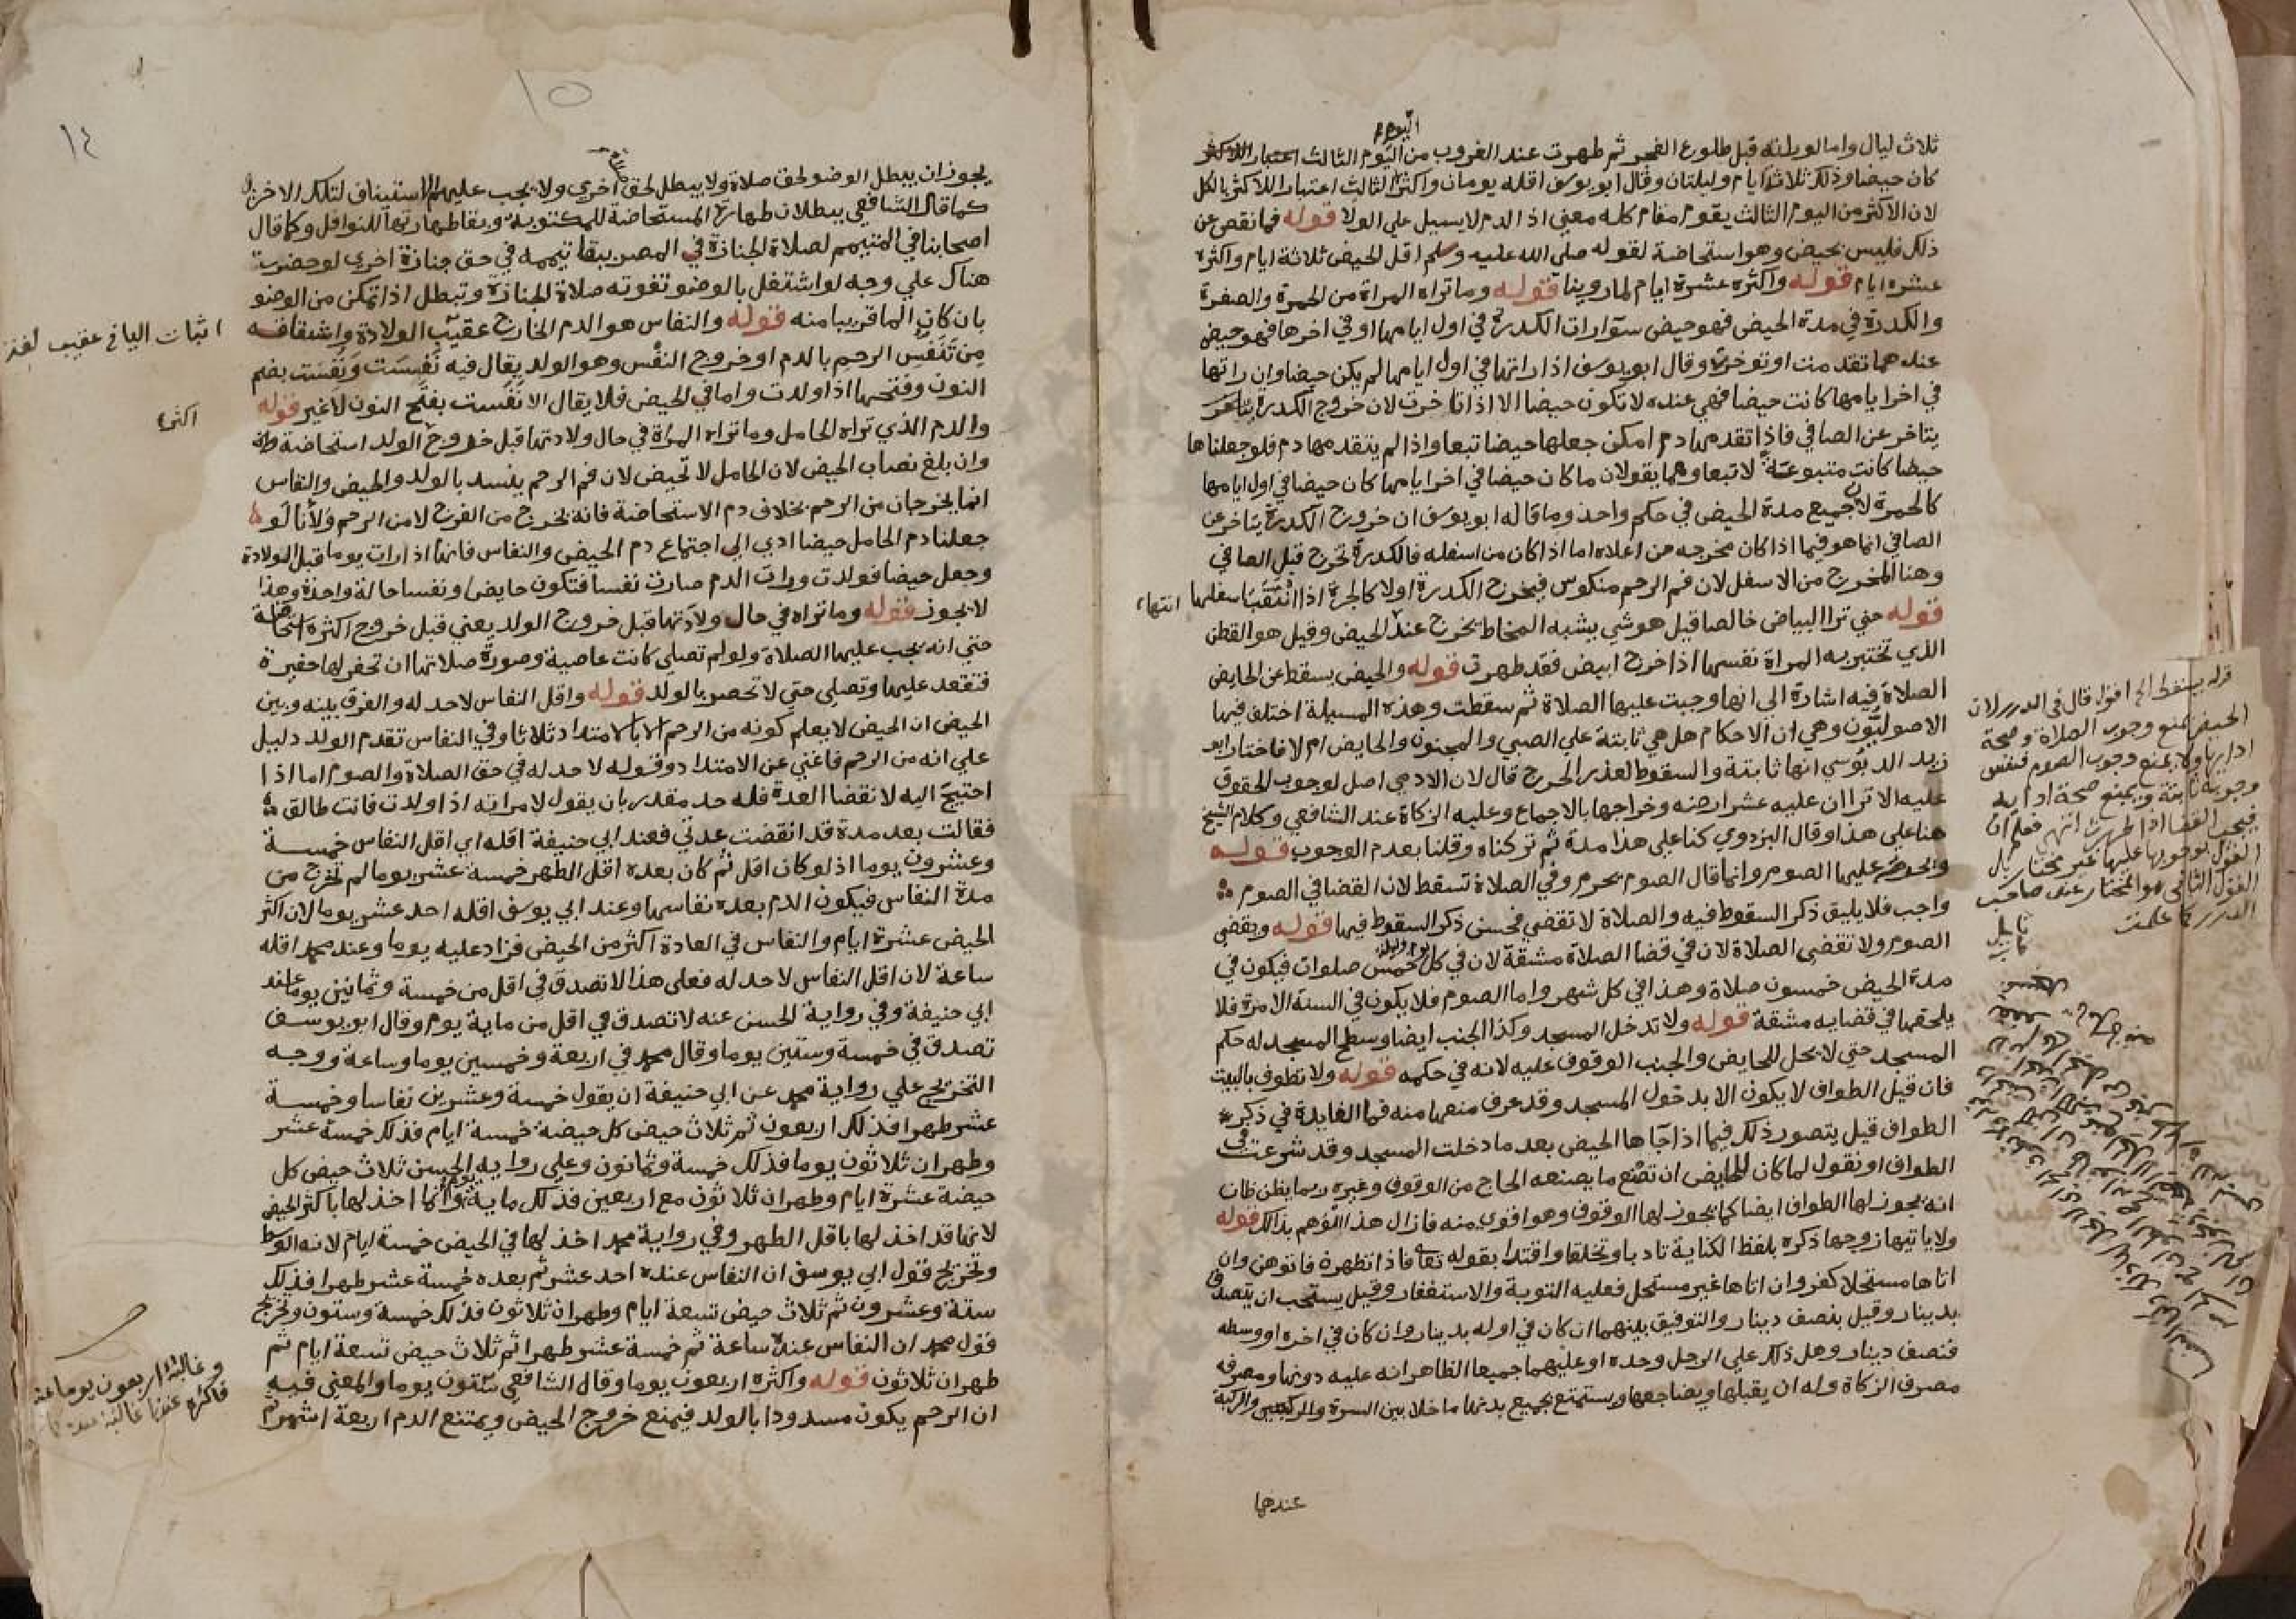 اليوم
ثلاث ليال واما لو راته قبل طلوع الفجر ثم طهرت عند الغروب من اليوم الثالث اعتبارا للاكثر
كان حيضا وذلك ثلاثة ايام وليلتان وقال ابو يوسف اقله يومان واكثر الثالث اعتبارا للاكثر بالكل
لان الاكثر من اليوم الثالث يقوم مقام كله معني اذ الدم لا يسيل علي الولا قوله فما نقص عن
ذلك فليس بحيض وهو استحاضة لقوله صلي الله عليه وسلم اقل الحيض ثلاثة ايام واكثره
عشرة ايام قوله واكثره عشرة ايام لما روينا قوله وما تراه المراة من الحمرة والصفرة
والكدرة في مدة الحيض فهو حيض سوآ رات الكدرة في اول ايامها او في اخرها فهو حيض
عندهما تقدمت او تاخرت وقال ابو يوسف اذا راتها في اول ايامها لم يكن حيضا وان راتها
في اخر ايامها كانت حيضا فهي عنده لا تكون حيضا الا اذا تاخرت لان خروج الكدرة يتاخر
يتاخر عن الصافي فاذا تقدمها دم امكن جعلها حيضا تبعا واذا لم يتقدمها دم فلو جعلناها
حيضا كانت متبوعة لا تبعا وهما يقولان ما كان حيضا في اخر ايامها كان حيضا في اول ايامها
كالحمرة لان جميع مدة الحيض في حكم واحد وما قاله ابو يوسف ان خروج الكدرة يتاخر عن
الصافي انما هو فيما اذا كان مخرجه من اعلاه اما اذا كان من اسفله فالكدرة تخرج قبل الصافي
وهنا المخرج من الاسفل لان فم الرحم منكوس فيخرج الكدرة اولا كالجرة اذا انثقب اسفلها انتهاء
قوله حتي ترا البياض خالصا قيل هو شي يشبه المخاط يخرج عند الحيض وقيل هو القطن
الذي تختبر به المراة نفسها اذا خرج ابيض فقد طهرت قوله والحيض يسقط عن الحايض
الصلاة فيه اشارة الي انها وجبت عليها الصلاة ثم سقطت وهذه المسيلة اختلف فيها
الاصوليون وهي ان الاحكام هل هي ثابتة علي الصبي والمجنون والحايض ام لا فاختار ابو
زيد الدبوسي انها ثابتة والسقوط لعذر الحرج قال لان الادمي اصل لوجوب الحقوق
عليه الا ترا ان عليه عشر ارضه وخراجها بالاجماع وعليه الزكاة عند الشافعي وكلام الشيخ
هنا علي هذا وقال البزدوي كنا علي هذا مدة ثم تركناه وقلنا بعدم الوجوب قوله
ويحرم عليها الصوم وانما قال الصوم يحرم وفي الصلاة تسقط لان القضا في الصوم
واجب فلا يليق ذكر السقوط فيه والصلاة لا تقضي فحسن ذكر السقوط فيها قوله ويقضي
الصوم ولا تقضي الصلاة لان في قضا الصلاة مشقة لان في كل يوم وليلة خمس صلوات فيكون في
مدة الحيض خمسون صلاة وهذا في كل شهر واما الصوم فلا يكون في السنة الا مرة فلا
يلحقها في قضايه مشقة قوله ولا تدخل المسجد وكذا الجنب ايضا وسطح المسجد له حكم
المسجد حتي لا يحل للحايض والجنب الوقوف عليه لانه في حكمه قوله ولا تطوف بالبيت
فان قيل الطواف لا يكون الا بدخول المسجد وقد عرف منعهما منه فما الفايدة في ذكره
الطواف قيل يتصور ذلك فيما اذا جآها الحيض بعد ما دخلت المسجد وقد شرعت في
الطواف او نقول لما كان للحايض ان تصنع ما يصنعه الحاج من الوقوف وغيره ربما يظن ظان
انه يجوز لها الطواف ايضا كما يجوز لها الوقوف وهو اقوي منه فازال هذا التوهم بذلك قوله
ولا ياتيها زوجها ذكره بلفظ الكناية تادبا وتخلقا واقتدا بقوله تعالي فاذا تطهرن فاتوهن وان
اتاها مستحلا كفر وان اتاها غير مستحل فعليه التوبة والاستغفار وقيل يستحب ان يتصدق
بدينار وقيل بنصف دينار والتوفيق بينهما ان كان في اوله بدينار وان كان في اخره او وسطه
فنصف دينار وهل ذلك علي الرجل وحده او عليهما جميعا الظاهر انه عليه دونها ومصرفه
مصرف الزكاة وله ان يقبلها ويضاجعها ويستمتع بجميع بدنها ما خلا بين السرة والركبة
عندهما
قوله يسقط الخ اقول قال في الدرر لان
الحيض يمنع وجوب الصلاة وصحة
ادايها ولا يمنع وجوب الصوم فنفس
وجوبه ثابتة ويمنع صحة ادايه
فيجب القضا اذا طهرت انتهي فعلم ان
القول بوجوبها عليها غير مختار بل
القول الثاني هو المختار عند صاحب
الدرر كما علمت
١٥
١٤
يجوز ان يبطل الوضو لحق صلاة ولا يبطل لحق اخري ولا يجب عليهم الاستيناف لتلك الاخري
كما قال الشافعي ببطلان طهارة المستحاضة للمكتوبة وبقا طهارتها للنوافل وكما قال
اصحابنا في المتيمم لصلاة الجنازة في المصر يبقا تيممه في حق جنازة اخري لو حضرت
هناك علي وجه لو اشتغل بالوضو تفوته صلاة الجنازة وتبطل اذا تمكن من الوضو
بان كان الما قريبا منه قوله والنفاس هو الدم الخارج عقيب الولادة واشتقاقه
من تنفس الرحم بالدم او خروج النفس وهو الولد يقال فيه نفست ونفست بضم
النون وفتحها اذا ولدت واما في الحيض فلا يقال الا نفست بفتح النون لا غير قوله
والدم الذي تراه الحامل وما تراه المراة في حال ولادتها قبل خروج الولد استحاضة
وان بلغ نصاب الحيض لان الحامل لا تحيض لان فم الرحم ينسد بالولد والحيض والنفاس
انما يخرجان من الرحم بخلاف دم الاستحاضة فانه يخرج من الفرج لا من الرحم ولانا لو
جعلنا دم الحامل حيضا ادي الي اجتماع دم الحيض والنفاس فانها اذا رات يوما قبل الولادة
وجعل حيضا فولدت ورات الدم صارت نفسا فتكون حايضا ونفسا حالة واحدة وهذا
لا يجوز قوله وما تراه في حال ولادتها قبل خروج الولد يعني قبل خروج اكثره استحاضة
حتي انه يجب عليها الصلاة ولو لم تصلي كانت عاصية وصورة صلاتها ان تحفر لها حفيرة
فتقعد عليها وتصلي حتي لا تحصر بالولد قوله واقل النفاس لا حد له والفرق بينه وبين
الحيض ان الحيض لا يعلم كونه من الرحم الا بالامتداد ثلاثا وفي النفاس تقدم الولد دليل
علي انه من الرحم فاغني عن الامتداد وقوله لا حد له في حق الصلاة والصوم اما اذا
احتيج اليه لانقضا العدة فله حد مقدر بان يقول لامراته اذا ولدت فانت طالق
فقالت بعد مدة قد انقضت عدتي فعند ابي حنيفة اقله اي اقل النفاس خمسة
وعشرون يوما اذ لو كان اقل ثم كان بعده اقل الطهر خمسة عشر يوما لم تخرج من
مدة النفاس فيكون الدم بعده نفاسها وعند ابي يوسف اقله احد عشر يوما لان اكثر
الحيض عشرة ايام والنفاس في العادة اكثر من الحيض فزاد عليه يوما وعند محمد اقله
ساعة لان اقل النفاس لا حد له فعلي هذا لا تصدق في اقل من خمسة وثمانين يوما عند
ابي حنيفة وفي رواية الحسن عنه لا تصدق في اقل من ماية يوم وقال ابو يوسف
تصدق في خمسة وستين يوما وقال محمد في اربعة وخمسين يوما وساعة ووجه
التخريج علي رواية محمد عن ابي حنيفة ان يقول خمسة وعشرين نفاسا وخمسة
عشر طهرا فذلك اربعون ثم ثلاث حيض كل حيضة خمسة ايام فذلك خمسة عشر
وطهران ثلاثون يوما فذلك خمسة وثمانون وعلي رواية الحسن ثلاث حيض كل
حيضة عشرة ايام وطهران ثلاثون مع اربعين فذلك ماية يوم وانما اخذ لها باكثر الحيض
لانها قد اخذ لها باقل الطهر وفي رواية محمد اخذ لها في الحيض خمسة ايام لانه الوسط
وتخريج قول ابي يوسف ان النفاس عنده احد عشر ثم بعده خمسة عشر طهرا فذلك
ستة وعشرون ثم ثلاث حيض تسعة ايام وطهران ثلاثون فذلك خمسة وستون وتخريج
قول محمد ان النفاس عنده ساعة ثم خمسة عشر طهرا ثم ثلاث حيض تسعة ايام ثم
طهران ثلاثون قوله واكثره اربعون يوما وقال الشافعي ستون يوما والمعني فيه
ان الرحم يكون مسدودا بالولد فيمنع خروج الحيض ويمتنع الدم اربعة اشهر
اثبات اليا في عقيب لغة
اكثره
وغالبه اربعون يوما عنه
فاكثره عندنا غالبه عنده